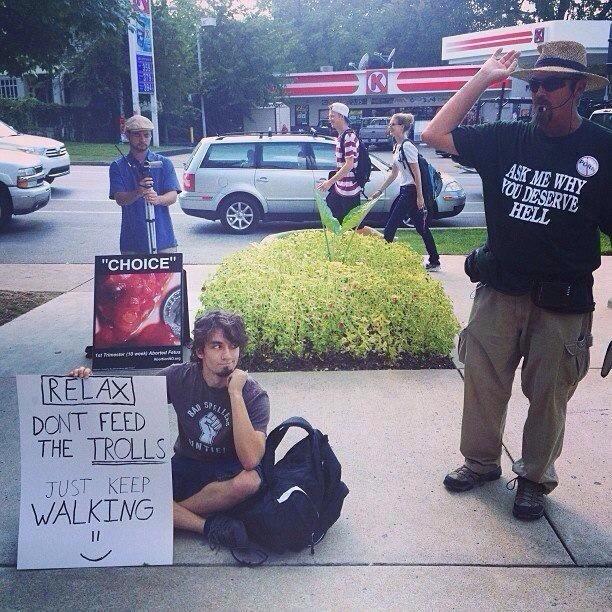 "CHOICE"
1st Trimester (10 week) Aborted Fetus
AbortionNO.org
RELAX
DONT FEED
THE TROLLS
JUST KEEP
WALKING
BAD SPELLERS
UNTIE!
ASK ME WHY
YOU DESERVE
HELL
K